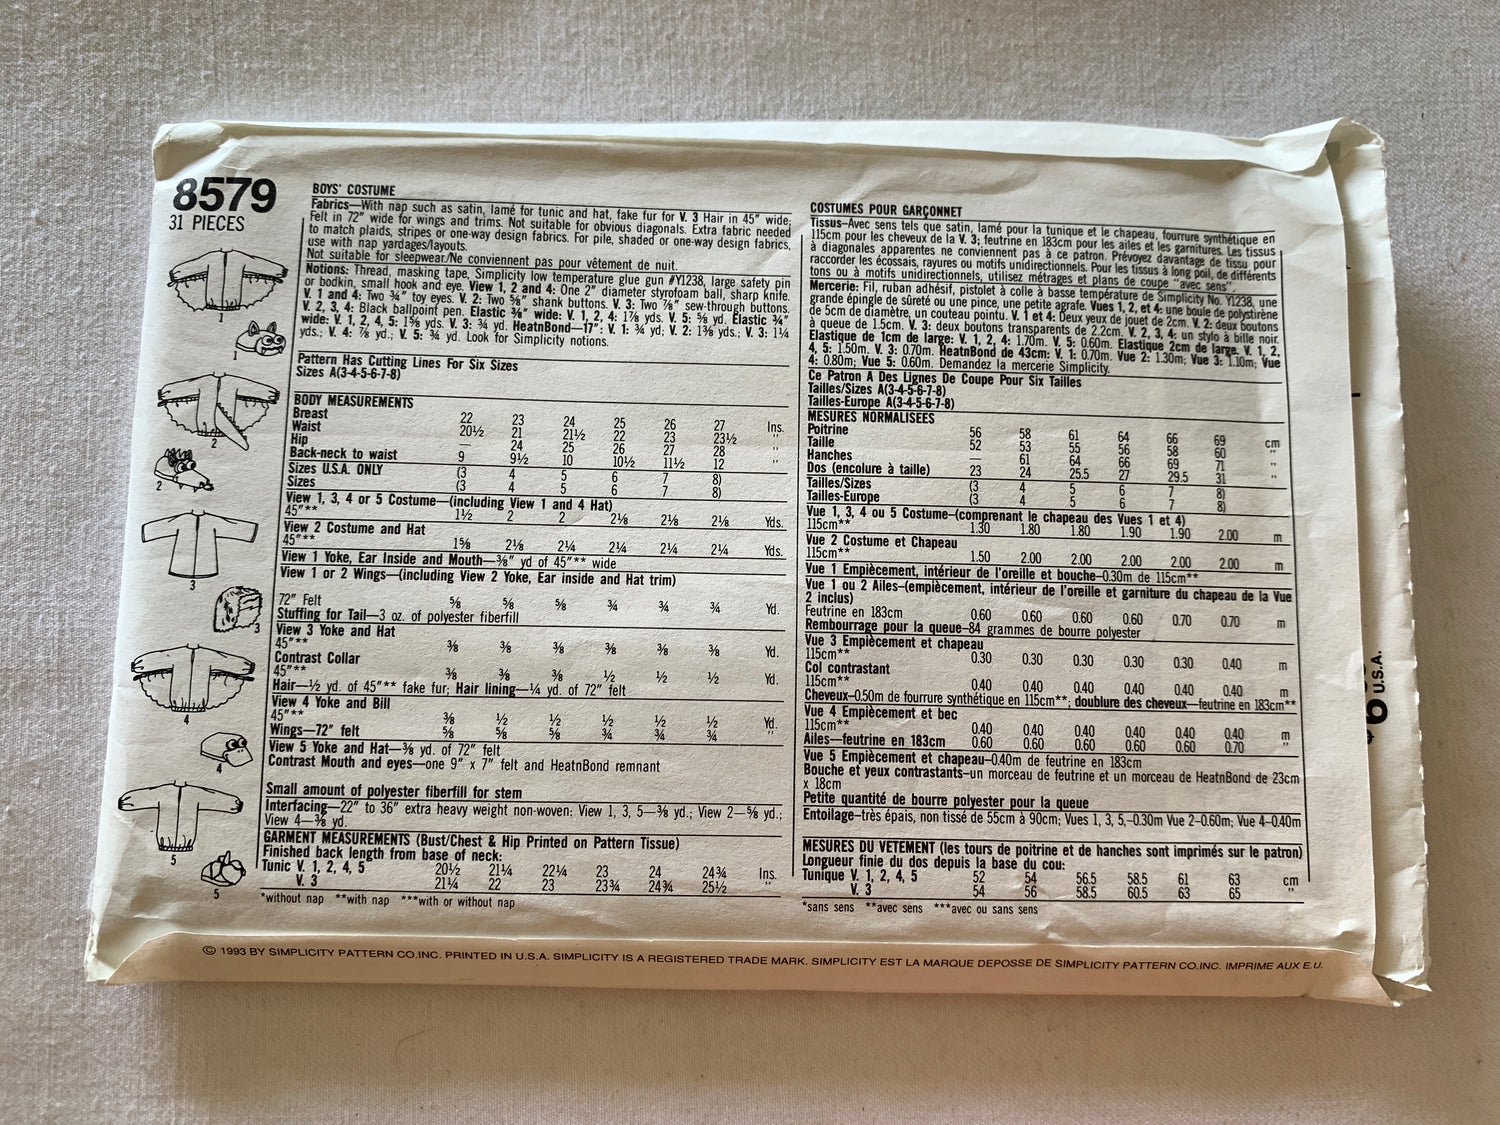 8579
31 PIECES
1
1
2
2
3
3
4
4
5
5
BOYS' COSTUME
Fabrics—With nap such as satin, lamé for tunic and hat, fake fur for V. 3 Hair in 45" wide;
Felt in 72" wide for wings and trims. Not suitable for obvious diagonals. Extra fabric needed
to match plaids, stripes or one-way design fabrics. For pile, shaded or one-way design fabrics,
use with nap yardages/layouts.
Not suitable for sleepwear/Ne conviennent pas pour vêtement de nuit.
Notions: Thread, masking tape, Simplicity low temperature glue gun #Y1238, large safety pin
or bodkin, small hook and eye. View 1, 2 and 4: One 2" diameter styrofoam ball, sharp knife.
V. 1 and 4: Two ¾" toy eyes. V. 2: Two ⅝" shank buttons. V. 3: Two ⅞" sew-through buttons.
V. 2, 3, 4: Black ballpoint pen. Elastic ⅜" wide: V. 1, 2, 4: 1⅞ yds. V. 5: ⅝ yd. Elastic ¾"
wide: V. 1, 2, 4, 5: 1⅝ yds. V. 3: ¾ yd. HeatnBond—17": V. 1: ¾ yd; V. 2: 1⅜ yds.; V. 3: 1¼
yds.; V. 4: ⅞ yd.; V. 5: ¾ yd. Look for Simplicity notions.
Pattern Has Cutting Lines For Six Sizes
Sizes A(3-4-5-6-7-8)
BODY MEASUREMENTS
Breast 22 23 24 25 26 27 Ins.
Waist 20½ 21 21½ 22 23 23½ "
Hip — 24 25 26 27 28 "
Back-neck to waist 9 9½ 10 10½ 11½ 12 "
Sizes U.S.A. ONLY (3 4 5 6 7 8)
Sizes (3 4 5 6 7 8)
View 1, 3, 4 or 5 Costume—(including View 1 and 4 Hat)
45"** 1½ 2 2 2⅛ 2⅛ 2⅛ Yds.
View 2 Costume and Hat
45"** 1⅝ 2⅛ 2¼ 2¼ 2¼ 2¼ Yds.
View 1 Yoke, Ear Inside and Mouth—⅜" yd of 45"** wide
View 1 or 2 Wings—(including View 2 Yoke, Ear inside and Hat trim)
72" Felt ⅝ ⅝ ⅝ ¾ ¾ ¾ Yd.
Stuffing for Tail—3 oz. of polyester fiberfill
View 3 Yoke and Hat
45"** ⅜ ⅜ ⅜ ⅜ ⅜ ⅜ Yd.
Contrast Collar
45"** ⅜ ⅜ ⅜ ½ ½ ½ Yd.
Hair—½ yd. of 45"** fake fur; Hair lining—¼ yd. of 72" felt
View 4 Yoke and Bill
45"** ⅜ ½ ½ ½ ½ ½ Yd.
Wings—72" felt ⅝ ⅝ ⅝ ¾ ¾ ¾ "
View 5 Yoke and Hat—⅜ yd. of 72" felt
Contrast Mouth and eyes—one 9" x 7" felt and HeatnBond remnant
Small amount of polyester fiberfill for stem
Interfacing—22" to 36" extra heavy weight non-woven: View 1, 3, 5—⅜ yd.; View 2—⅝ yd.;
View 4—⅜ yd.
GARMENT MEASUREMENTS (Bust/Chest & Hip Printed on Pattern Tissue)
Finished back length from base of neck:
Tunic V. 1, 2, 4, 5 20½ 21¼ 22¼ 23 24 24¾ Ins.
V. 3 21¼ 22 23 23¾ 24¾ 25½ "
*without nap **with nap ***with or without nap
COSTUMES POUR GARÇONNET
Tissus—Avec sens tels que satin, lamé pour la tunique et le chapeau, fourrure synthétique en
115cm pour les cheveux de la V. 3; feutrine en 183cm pour les ailes et les garnitures. Les tissus
à diagonales apparentes ne conviennent pas à ce patron. Prévoyez davantage de tissu pour
raccorder les écossais, rayures ou motifs unidirectionnels. Pour les tissus à long poil, de différents
tons ou à motifs unidirectionnels, utilisez métrages et plans de coupe "avec sens".
Mercerie: Fil, ruban adhésif, pistolet à colle à basse température de Simplicity No. Y1238, une
grande épingle de sûreté ou une pince, une petite agrafe. Vues 1, 2, et 4: une boule de polystirène
de 5cm de diamètre, un couteau pointu. V. 1 et 4: Deux yeux de jouet de 2cm. V. 2: deux boutons
à queue de 1.5cm. V. 3: deux boutons transparents de 2.2cm. V. 2, 3, 4: un stylo à bille noir.
Elastique de 1cm de large: V. 1, 2, 4: 1.70m. V. 5: 0.60m. Elastique 2cm de large. V. 1, 2,
4, 5: 1.50m. V. 3: 0.70m. HeatnBond de 43cm: V. 1: 0.70m. Vue 2: 1.30m; Vue 3: 1.10m; Vue
4: 0.80m; Vue 5: 0.60m. Demandez la mercerie Simplicity.
Ce Patron A Des Lignes De Coupe Pour Six Tailles
Tailles/Sizes A(3-4-5-6-7-8)
Tailles-Europe A(3-4-5-6-7-8)
MESURES NORMALISEES
Poitrine 56 58 61 64 66 69 cm
Taille 52 53 55 56 58 60 "
Hanches — 61 64 66 69 71 "
Dos (encolure à taille) 23 24 25.5 27 29.5 31 "
Tailles/Sizes (3 4 5 6 7 8)
Tailles-Europe (3 4 5 6 7 8)
Vue 1, 3, 4 ou 5 Costume—(comprenant le chapeau des Vues 1 et 4)
115cm** 1.30 1.80 1.80 1.90 1.90 2.00 m
Vue 2 Costume et Chapeau
115cm** 1.50 2.00 2.00 2.00 2.00 2.00 m
Vue 1 Empiècement, intérieur de l'oreille et bouche—0.30m de 115cm**
Vue 1 ou 2 Ailes—(empiècement, intérieur de l'oreille et garniture du chapeau de la Vue
2 inclus)
Feutrine en 183cm 0.60 0.60 0.60 0.60 0.70 0.70 m
Rembourrage pour la queue—84 grammes de bourre polyester
Vue 3 Empiècement et chapeau
115cm** 0.30 0.30 0.30 0.30 0.30 0.40 m
Col contrastant
115cm** 0.40 0.40 0.40 0.40 0.40 0.40 m
Cheveux—0.50m de fourrure synthétique en 115cm**; doublure des cheveux—feutrine en 183cm**
Vue 4 Empiècement et bec
115cm** 0.40 0.40 0.40 0.40 0.40 0.40 m
Ailes—feutrine en 183cm 0.60 0.60 0.60 0.60 0.60 0.70 "
Vue 5 Empiècement et chapeau—0.40m de feutrine en 183cm
Bouche et yeux contrastants—un morceau de feutrine et un morceau de HeatnBond de 23cm
x 18cm
Petite quantité de bourre polyester pour la queue
Entoilage—très épais, non tissé de 55cm à 90cm; Vues 1, 3, 5,—0.30m Vue 2—0.60m; Vue 4—0.40m
MESURES DU VETEMENT (les tours de poitrine et de hanches sont imprimés sur le patron)
Longueur finie du dos depuis la base du cou:
Tunique V. 1, 2, 4, 5 52 54 56.5 58.5 61 63 cm
V. 3 54 56 58.5 60.5 63 65 "
*sans sens **avec sens ***avec ou sans sens
© 1993 BY SIMPLICITY PATTERN CO.INC. PRINTED IN U.S.A. SIMPLICITY IS A REGISTERED TRADE MARK. SIMPLICITY EST LA MARQUE DEPOSSE DE SIMPLICITY PATTERN CO.INC. IMPRIME AUX E.U.
U.S.A.